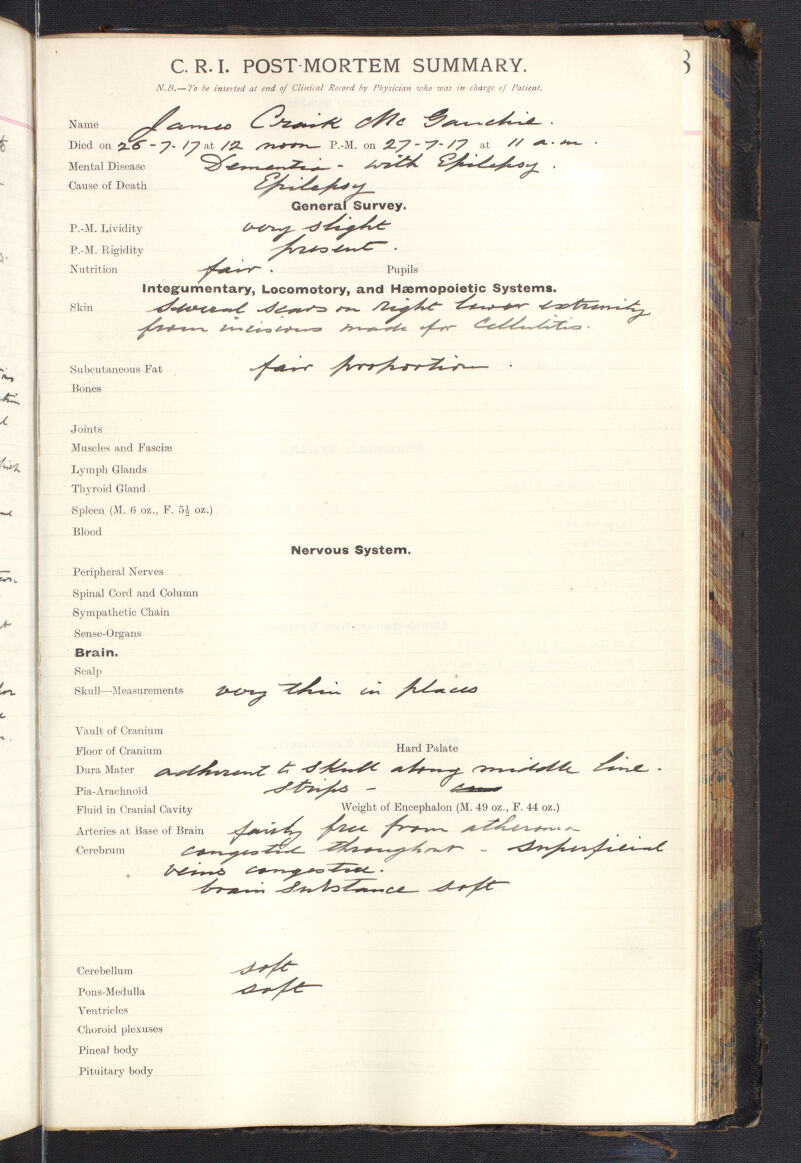 C. R. I. POST-MORTEM SUMMARY.
N.B.—To be inserted at end of Clinical Record by Physician who was in charge of Patient.
Name James Craik Mc Gauchie.
Died on 26-7-17 at 12 noon P.-M. on 27-7-17 at 11 a.m.
Mental Disease Dementia - with Epilepsy.
Cause of Death Epilepsy
General Survey.
P.-M. Lividity very slight
P.-M. Rigidity present.
Nutrition fair. Pupils
Integumentary, Locomotory, and Hæmopoietic Systems.
Skin Several scars on right lower extremity
from incisions made for Cellulitis.
Subcutaneous Fat fair proportion.
Bones
Joints
Muscles and Fasciæ
Lymph Glands
Thyroid Gland
Spleen (M. 6 oz., F. 5½ oz.)
Blood
Nervous System.
Peripheral Nerves
Spinal Cord and Column
Sympathetic Chain
Sense-Organs
Brain.
Scalp
Skull—Measurements very thin in places
Vault of Cranium
Floor of Cranium Hard Palate
Dura Mater adherent to skull along middle line.
Pia-Arachnoid strips -
Fluid in Cranial Cavity Weight of Encephalon (M. 49 oz., F. 44 oz.)
Arteries at Base of Brain fairly free from atheroma
Cerebrum congested throughout - superficial
veins congested.
brain substance soft
Cerebellum soft
Pons-Medulla soft
Ventricles
Choroid plexuses
Pineal body
Pituitary body